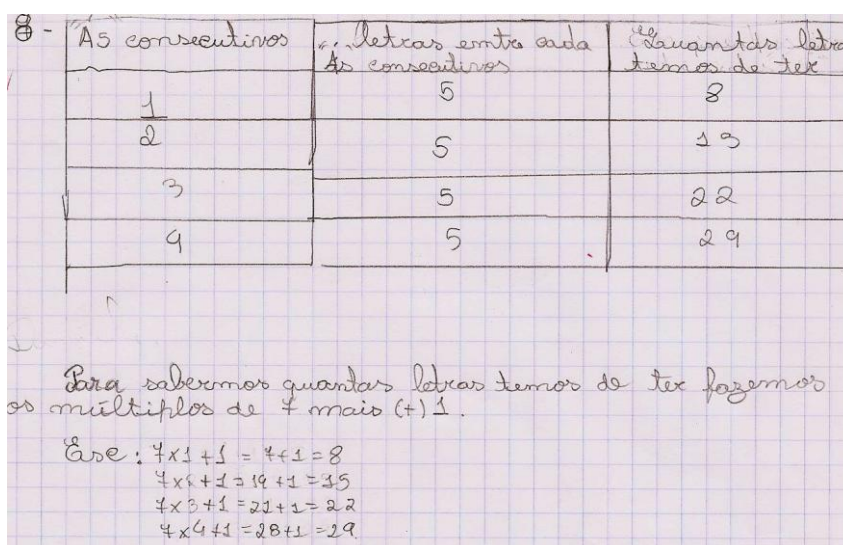 8-
As consecutivos | ... letras entre cada As consecutivos | Quantas letra temos de ter
1 | 5 | 8
2 | 5 | 15
3 | 5 | 22
4 | 5 | 29
Para sabermos quantas letras temos de ter fazemos
os múltiplos de 7 mais (+) 1.
7x1+1 = 7+1=8
+1=14+1=15
7x3+1=21+1=22
7x4+1=28+1=29